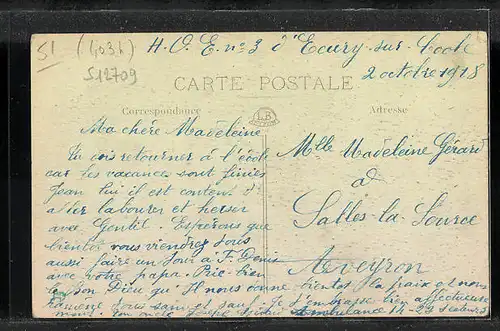 51 (403k)
S12709
H.O.E. n° 3 d'Ecury-sur-Coole
2 octobre 1918
CARTE POSTALE
Correspondance
LB
Adresse
Ma chère Madeleine
Tu vois retourner à l'école
car les vacances sont finies
Jean lui il est content d'
aller labourer et herser
avec Gentil. Espérons que
bientôt vous viendrez tous
aussi faire un tour à
avec votre papa. Prie bien
le bon Dieu qu'Il nous donne bientôt la paix et nous
sain et sauf. Je t'embrasse bien affectueuse
ment. Ton oncle Joseph
Ambulance 14-22 Secteur
Mlle Madeleine Gérard
à
Salles-la-Source
Aveyron